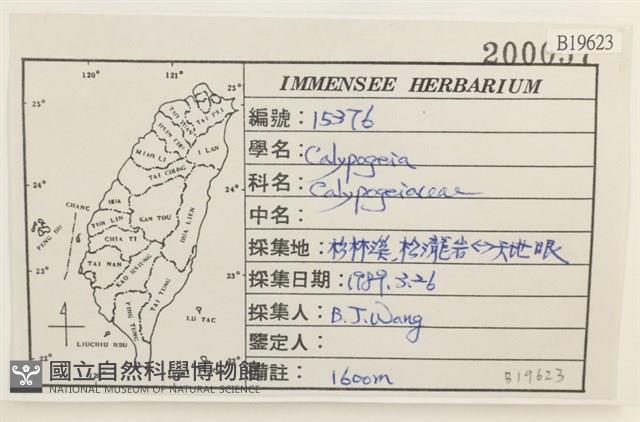 B19623
IMMENSEE HERBARIUM
編號：15376
學名：Calypogeia
科名：Calypogeiaceae
中名：
採集地：杉林溪、松瀧岩<->天地眼
採集日期：1989.3.26
採集人：B.J.Wang
鑒定人：
備註：1600m
B19623
120°
121°
25°
25°
TAI PEI
I LAN
MIAO LI
TAI CHUNG
24°
24°
CHANG
HUA
YUN LIN
NAN TOU
HUA LIEN
PENG HU
CHIA YI
TAI NAN
KAO HSIUNG
23°
23°
PING TUNG
TAI TUNG
LU TAO
LIUCHIU HSU
22°
國立自然科學博物館
NATIONAL MUSEUM OF NATURAL SCIENCE